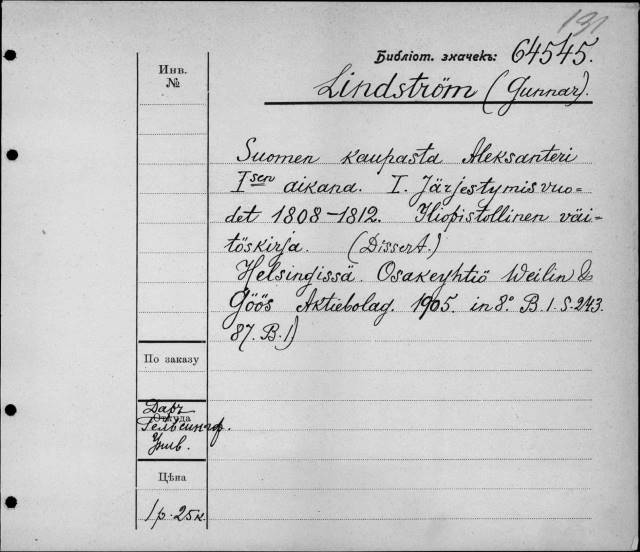 191
Инв.
№
Библіот. значекъ: 64545.
Lindström (Gunnar).
Suomen kaupasta Aleksanteri
Isen aikana. I. Järjestymisvuo=
det 1808-1812. Yliopistollinen väi-
töskirja. (Dissert.)
Helsingissä. Osakeyhtiö Weilin &
Göös Aktiebolag. 1905. in 8° B. 1. S. 243.
87. B. 1)
По заказу
Откуда
Даръ
Гельсингф.
Унив.
Цѣна
1 р. 25 к.